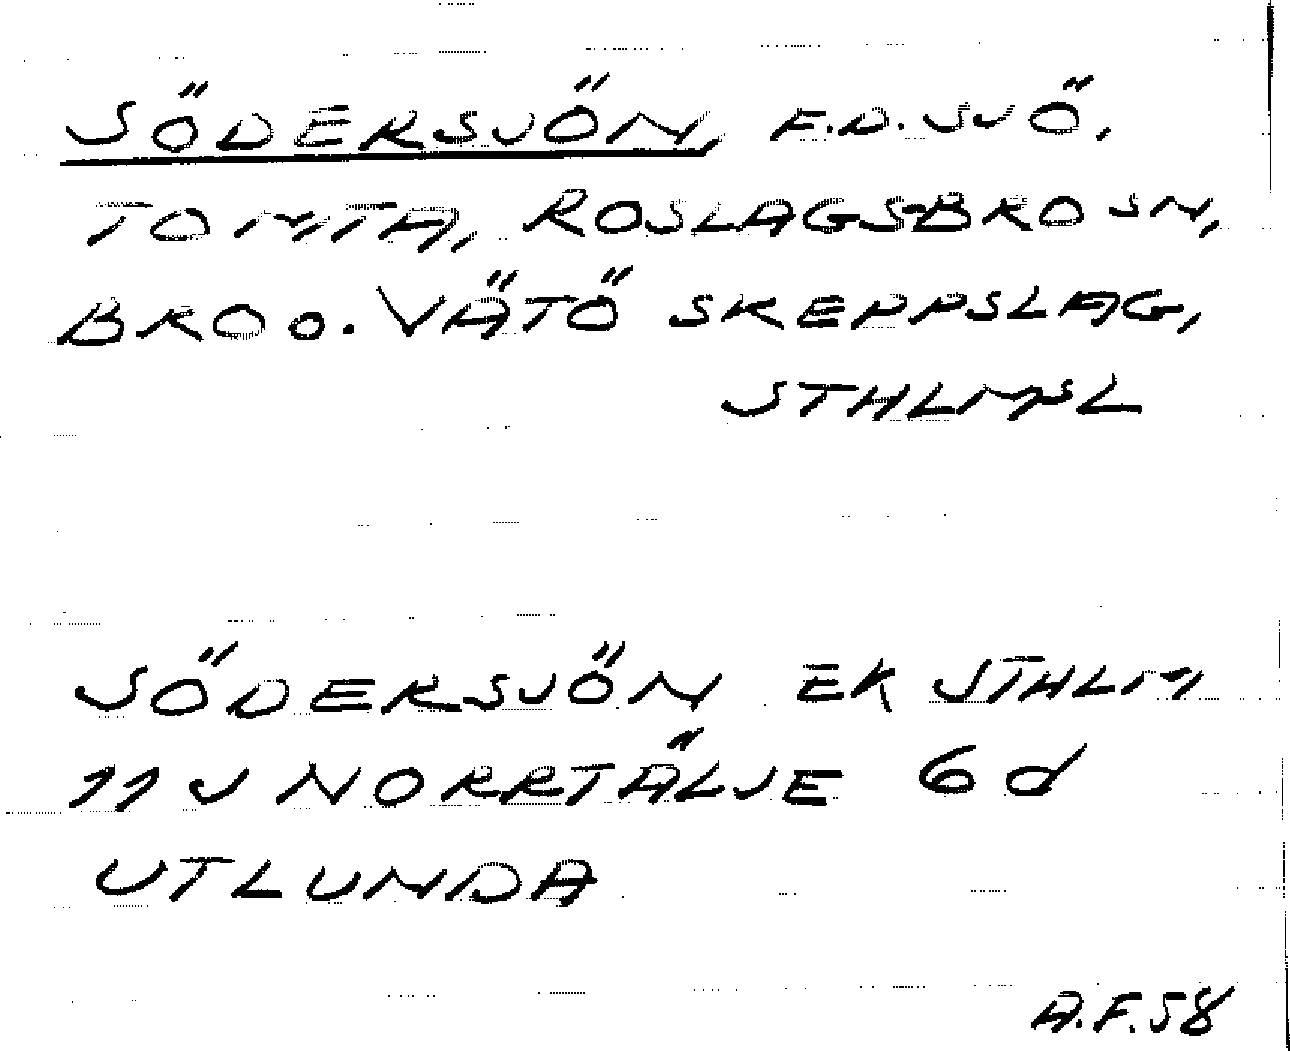 SÖDERSJÖN, F.D. SJÖ,
TOMTA, ROSLAGS-BRO SN,
BRO O. VÄTÖ SKEPPSLAG,
STHLMSL
SÖDERSJÖN EK STHLM
11 J NORRTÄLJE 6 d
UTLUNDA
A.F. 58